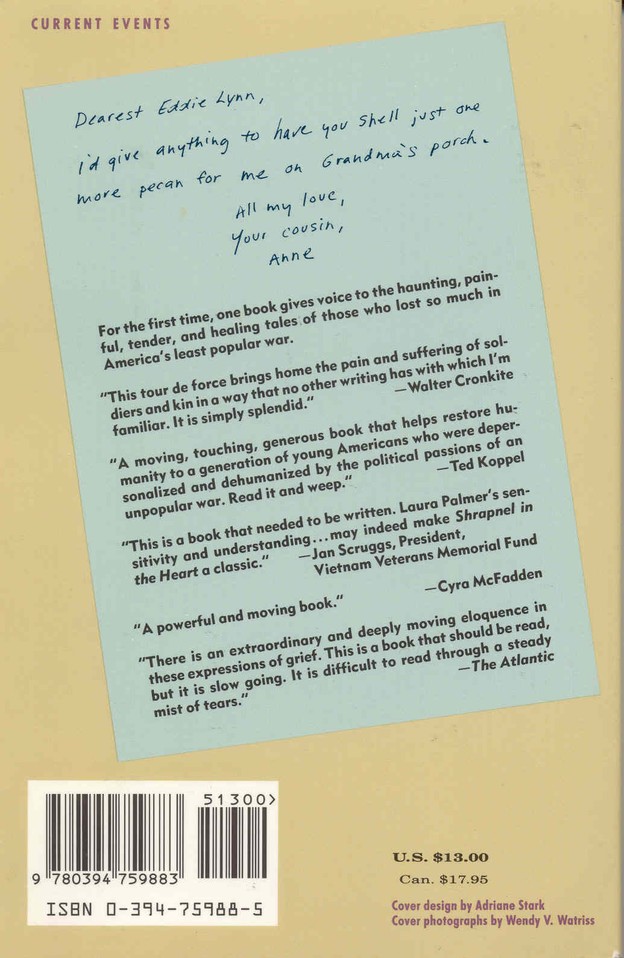 CURRENT EVENTS
Dearest Eddie Lynn,
I'd give anything to have you shell just one
more pecan for me on Grandma's porch.
All my love,
Your cousin,
Anne
For the first time, one book gives voice to the haunting, pain-
ful, tender, and healing tales of those who lost so much in
America's least popular war.
"This tour de force brings home the pain and suffering of sol-
diers and kin in a way that no other writing has with which I'm
familiar. It is simply splendid." —Walter Cronkite
"A moving, touching, generous book that helps restore hu-
manity to a generation of young Americans who were deper-
sonalized and dehumanized by the political passions of an
unpopular war. Read it and weep." —Ted Koppel
"This is a book that needed to be written. Laura Palmer's sen-
sitivity and understanding...may indeed make Shrapnel in
the Heart a classic." —Jan Scruggs, President,
Vietnam Veterans Memorial Fund
"A powerful and moving book." —Cyra McFadden
"There is an extraordinary and deeply moving eloquence in
these expressions of grief. This is a book that should be read,
but it is slow going. It is difficult to read through a steady
mist of tears." —The Atlantic
51300>
9 780394 759883
ISBN 0-394-75988-5
U.S. $13.00
Can. $17.95
Cover design by Adriane Stark
Cover photographs by Wendy V. Watriss